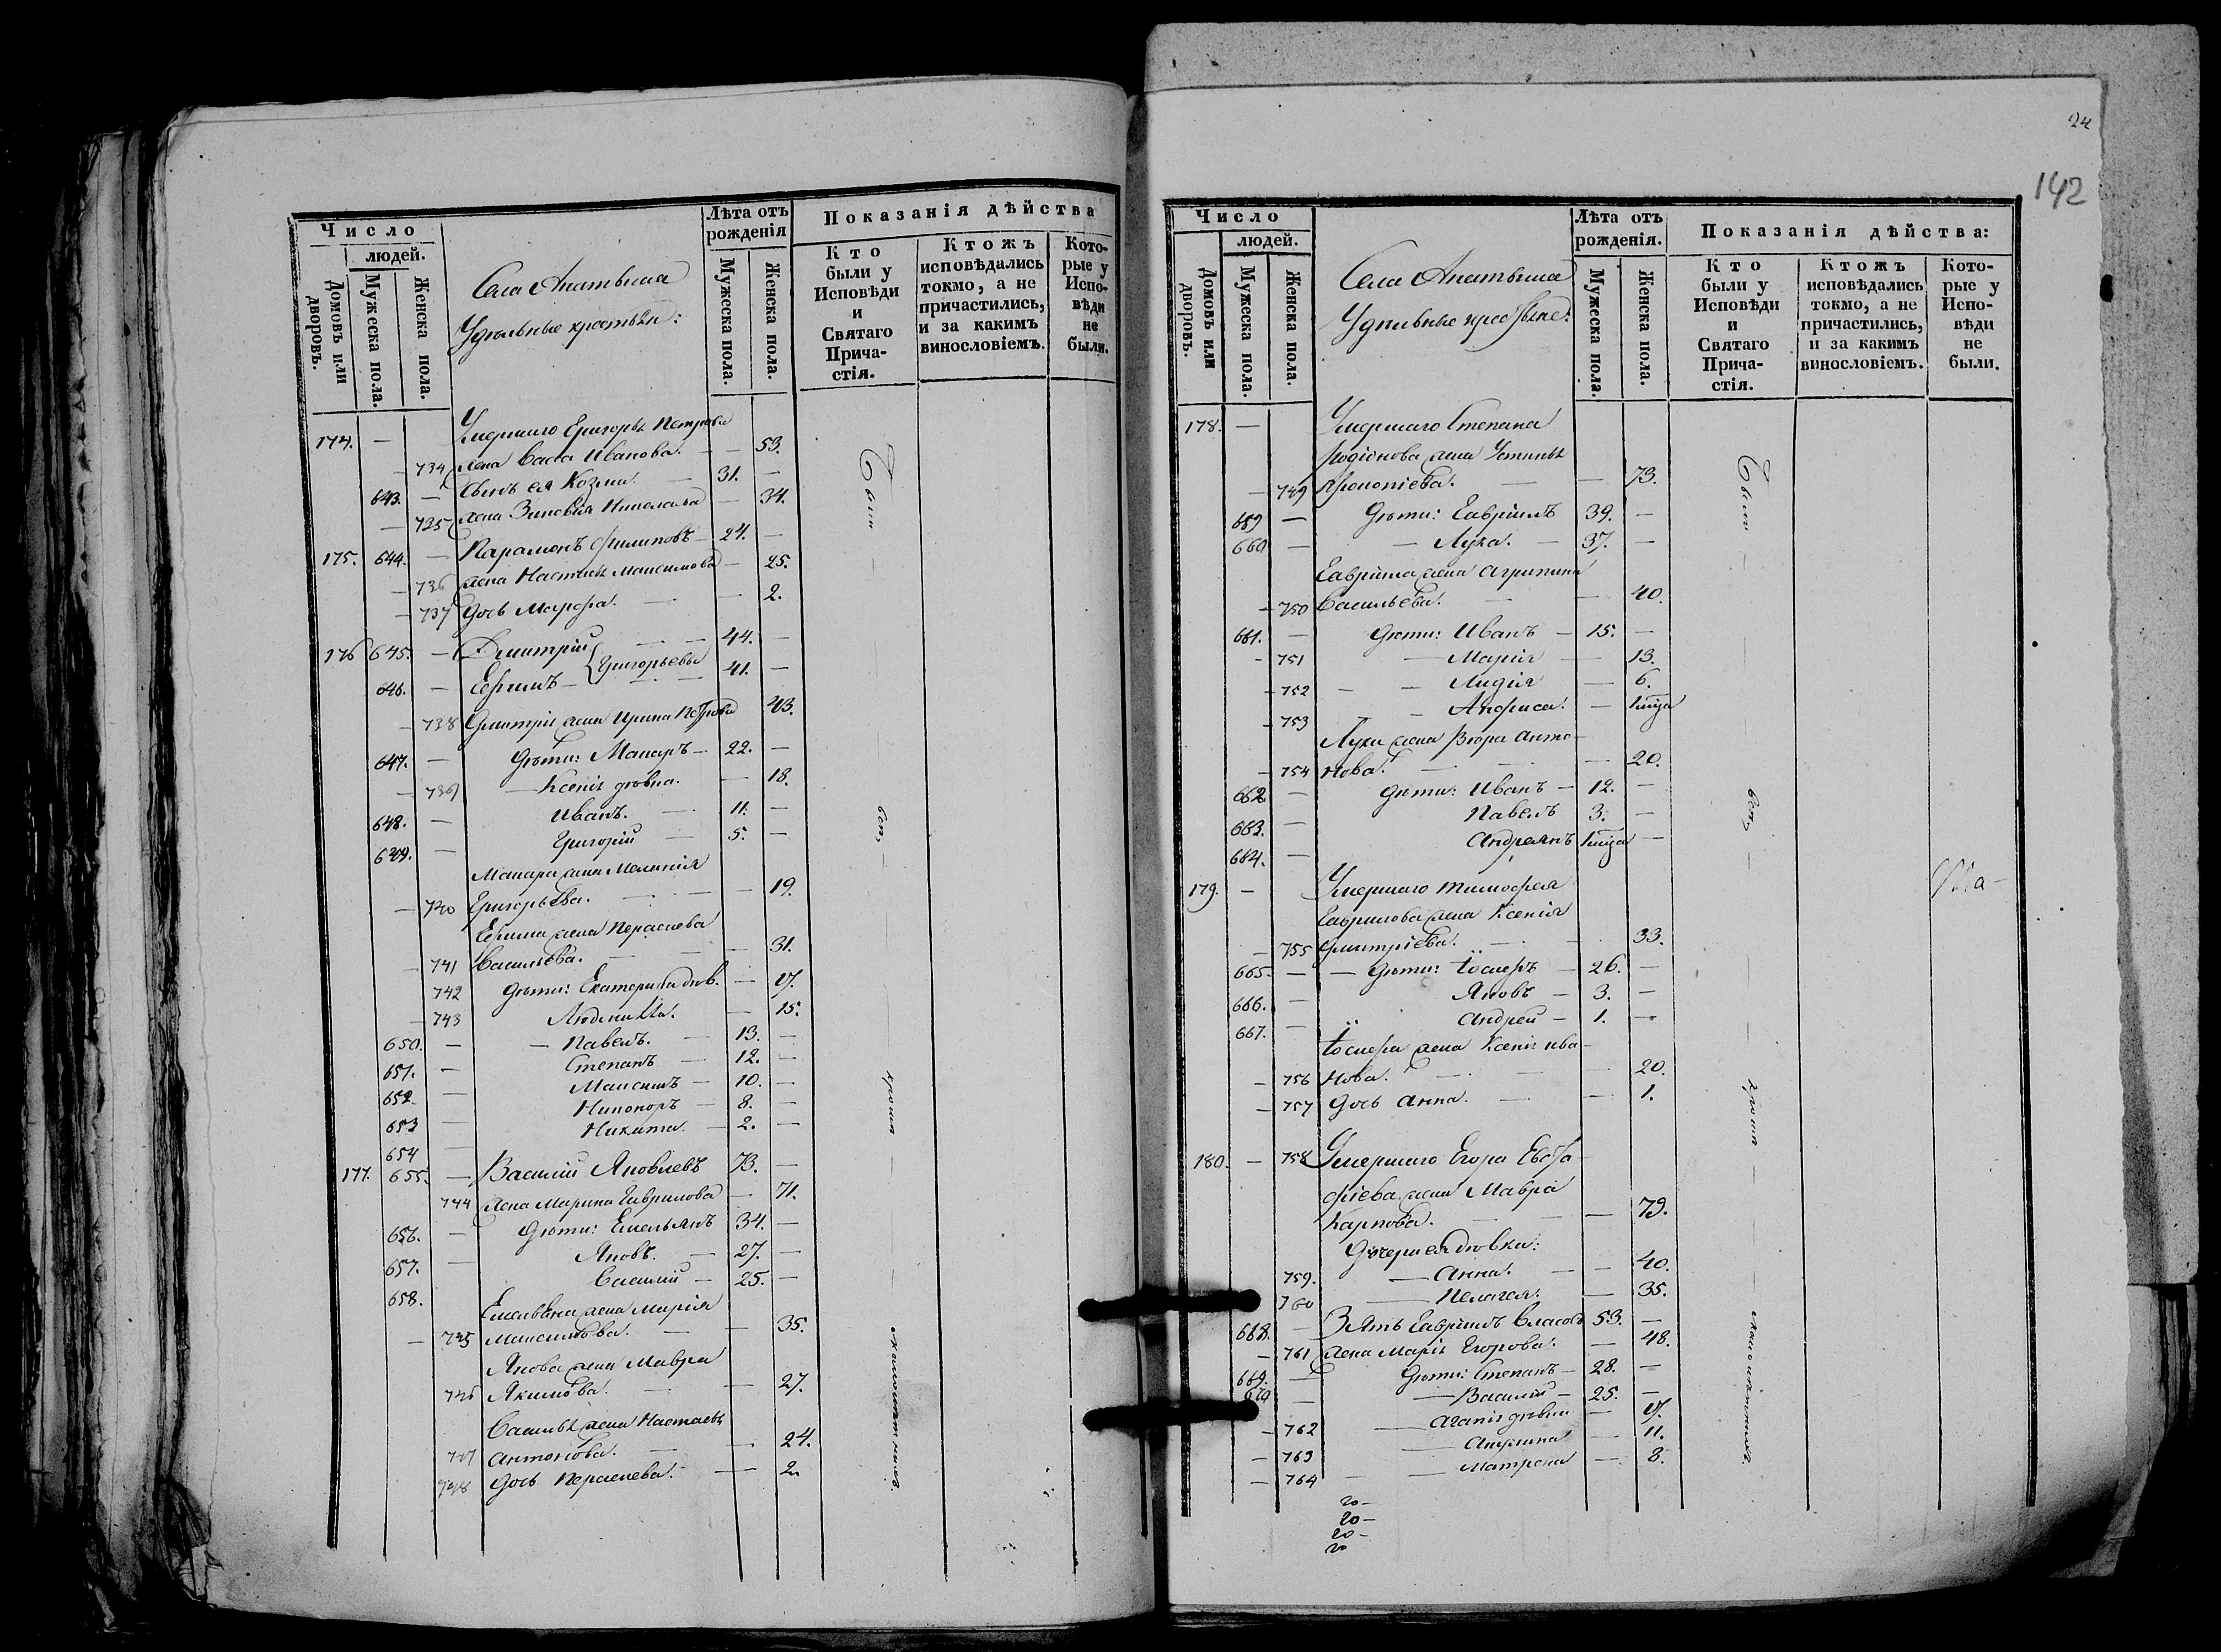 Число
людей.
Домовъ или дворовъ.
Мужеска пола.
Женска пола.
Села Ипатьвша
Удѣльные крестьяне:
Лѣта отъ рожденія
Мужеска пола.
Женска пола.
Показанія дѣйства
Кто были у Исповѣди и Святаго Причастія.
Ктожъ исповѣдались токмо, а не причастились, и за какимъ винословіемъ.
Которые у Исповѣди не были.
174. — Умершаго Григорья Петрова
— 734 жена Васса Иванова. — 53.
643. — Сынъ ея Козма. 31. —
— 735 жена Зиновія Николаева — 34.
175. 644. — Парамонъ Филиповъ — 24. —
— 736 жена Настасья Максимова — 25.
— 737 дочь Марфа. — 2.
176 645. — Дмитрій 44. —
Григорьевы
646. — Ефимъ — 41. —
— 738 Дмитрія жена Ирина Петрова 43.
647. — дѣти: Макаръ — 22. —
— 739 — Ксенія дѣвка. — 18.
648. — Иванъ. — 11. —
649. — Григорій — 5. —
Макара жена Меланія
— 740 Григорьева. — 19.
Ефима жена Параскева
— 741 Васильева. — 31.
742 дѣти: Екатерина дѣв. — 17.
— 743 Людмила. — 15.
650. — — Павелъ. — 13. —
651. — Степанъ — 12. —
652. — Максимъ — 10. —
653 — Никоноръ — 8. —
654 — Никита. — 2. —
177. 655. — Василій Яковлевъ 73. —
744 жена Марина Гаврилова — 71.
656. — дѣти: Емельянъ 34. —
657. — Яковъ. — 27. —
658. Василій — 25. —
Емельяна жена Марія
— 745 Максимова. — 35.
Якова жена Мавра
746 Якимова. — 27.
Василья жена Настасья
747 Антонова. — 24.
748 дочь Параскева. — 2.
Были — — вси — христіане
24
142
Число
людей.
Домовъ или дворовъ.
Мужеска пола.
Женска пола.
Села Ипатьвша
Удѣльные крестьяне:
Лѣта отъ рожденія.
Мужеска пола.
Женска пола.
Показанія дѣйства:
Кто были у Исповѣди и Святаго Причастія.
Ктожъ исповѣдались токмо, а не причастились, и за какимъ винословіемъ.
Которые у Исповѣди не были.
178. — Умершаго Степана
Родіонова жена Устинья
— 749 Прокопіева. — 73.
659 — дѣти: Гавріилъ 39. —
660. — — Лука. — 37. —
Гавріила жена Агрипина
— 750 Васильева. — 40.
661. — дѣти: Иванъ — 15. —
— 751 — Марія — 13.
— 752 — Лидія — 6.
— 753 — Анфиса. —
Луки жена Вѣра Анто-
— 754 нова. — 20.
662 — дѣти: Иванъ — 12. —
663. — Павелъ 3. —
664. — Андреянъ —
179. — Умершаго Тимофея
Гаврилова жена Ксенія
— 755 Дмитріева. — 33.
665. — — дѣти: Іосифъ — 26. —
666. — Яковъ — 3. —
667. — Андрей — 1. —
Іосифа жена Ксенія Ива-
— 756 нова. — 20.
— 757 дочь Анна. — 1.
180. — 758 Умершаго Егора Евста-
фіева жена Мавра
Карпова. — 79.
Дочери ея дѣвки:
759. — Анна. — 40.
760 — Пелагея. — 35.
668. — Зять Гавріилъ Власовъ 53. —
— 761 жена Марія Егорова. — 48.
669. — дѣти: Степанъ — 28. —
670 — — Василій — 25. —
— 762 — Агапія дѣвка — 17.
— 763 — Акулина — 11.
— 764 — Матрена — 8.
20 —
20 —
20 —
20
Были —
вси —